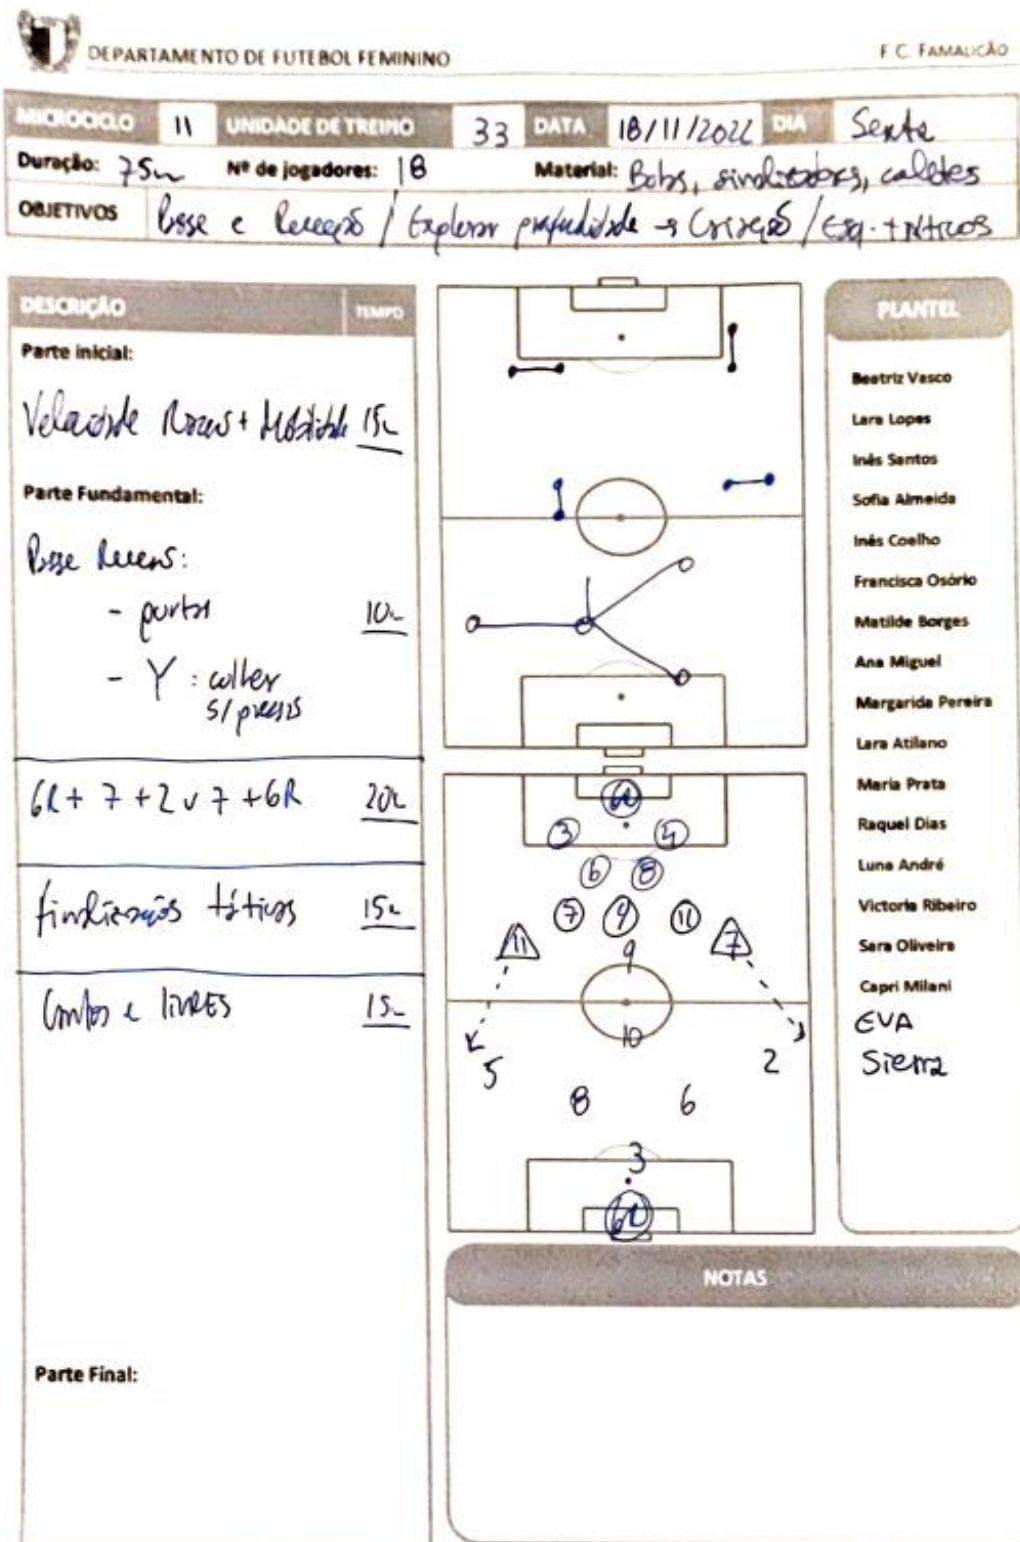 DEPARTAMENTO DE FUTEBOL FEMININO
F. C. FAMALICÃO
MICROCICLO 11 UNIDADE DE TREINO 33 DATA 18/11/2022 DIA Sexta
Duração: 75m Nº de jogadores: 18 Material: Bolas, sinalizadores, coletes
OBJETIVOS Passe e Receção / Explorar profundidade → Criação / Esq. táticos
DESCRIÇÃO TEMPO
Parte inicial:
Velocidade + Mobilidade 15m
Parte Fundamental:
Passe Receção:
- portas 10m
- Y : colher
s/ pressão
GR + 7 + 2 v 7 + GR 20m
finalizações táticas 15m
Cantos e livres 15m
Parte Final:
GR
3 4
6 8
7 9 11
11 7
9
10
5 2
8 6
3
GR
PLANTEL
Beatriz Vasco
Lara Lopes
Inês Santos
Sofia Almeida
Inês Coelho
Francisca Osório
Matilde Borges
Ana Miguel
Margarida Pereira
Lara Atilano
Maria Prata
Raquel Dias
Luna André
Victoria Ribeiro
Sara Oliveira
Capri Milani
EVA
Sierra
NOTAS